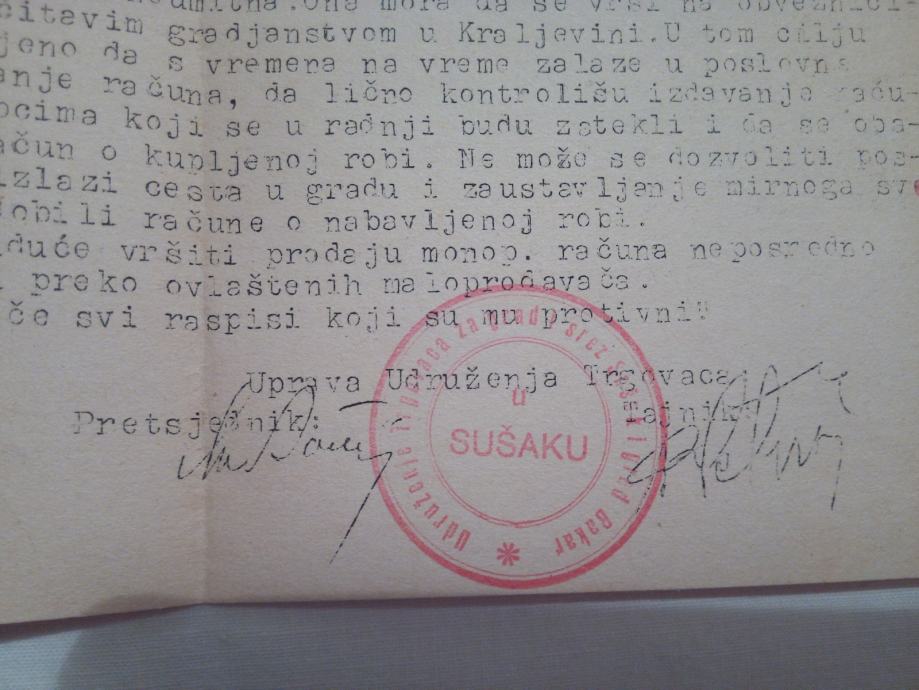 umitna. Ona mora da se vrši na obveznici-
čitavim gradjanstvom u Kraljevini. U tom cilju
jeno da s vremera na vreme zalaze u poslovna
anje računa, da lično kontrolišu izdavanje raču-
ocima koji se u radnji budu zatekli i da se oba-
ačun o kupljenoj robi. Ne može se dozvoliti pos-
izlazi cesta u gradu i zaustavljanje mirnoga sve
dobili račune o nabavljenoj robi.
duće vršiti prodaju monop. računa neposredno
i preko ovlaštenih maloprodavača.
če svi raspisi koji su mu protivni"
Uprava Udruženja Trgovaca
Pretsjednik:
Tajnik:
Udruženje Trgovaca za grad i srez Sušak i grad Bakar
u
SUŠAKU